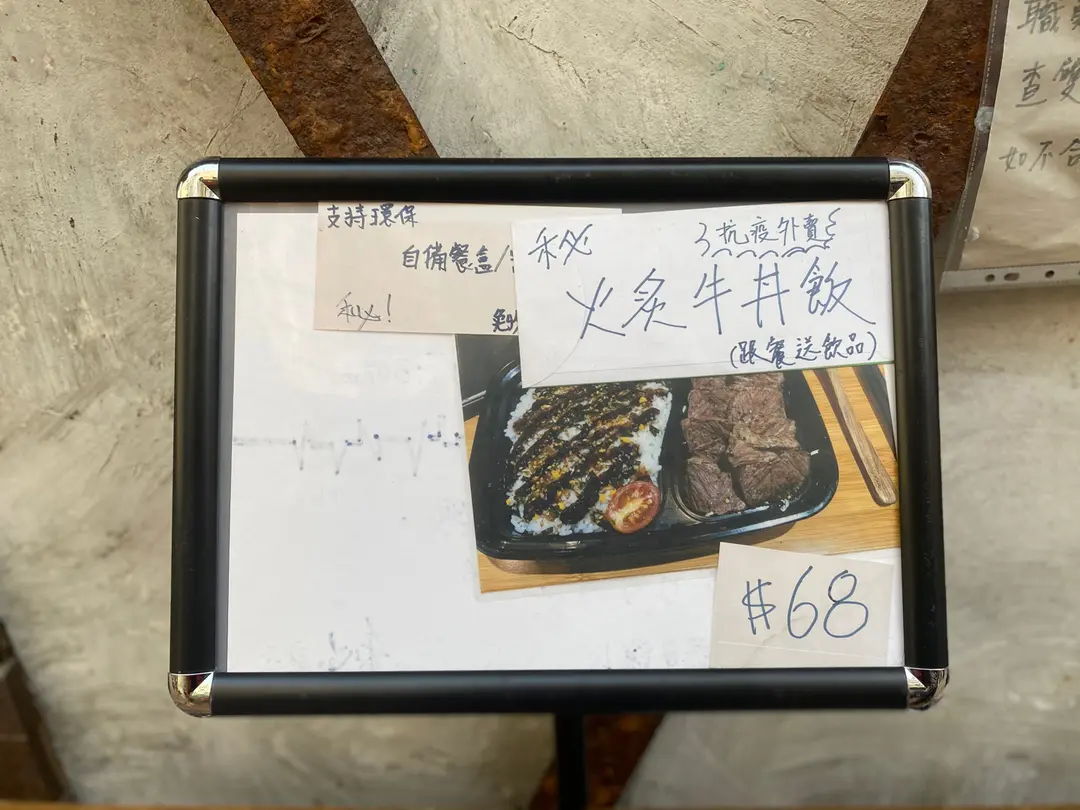 支持環保
自備餐盒/
秘!
秘
抗疫外賣
火炙牛丼飯
(跟餐送飲品)
$68
職
查
如不合